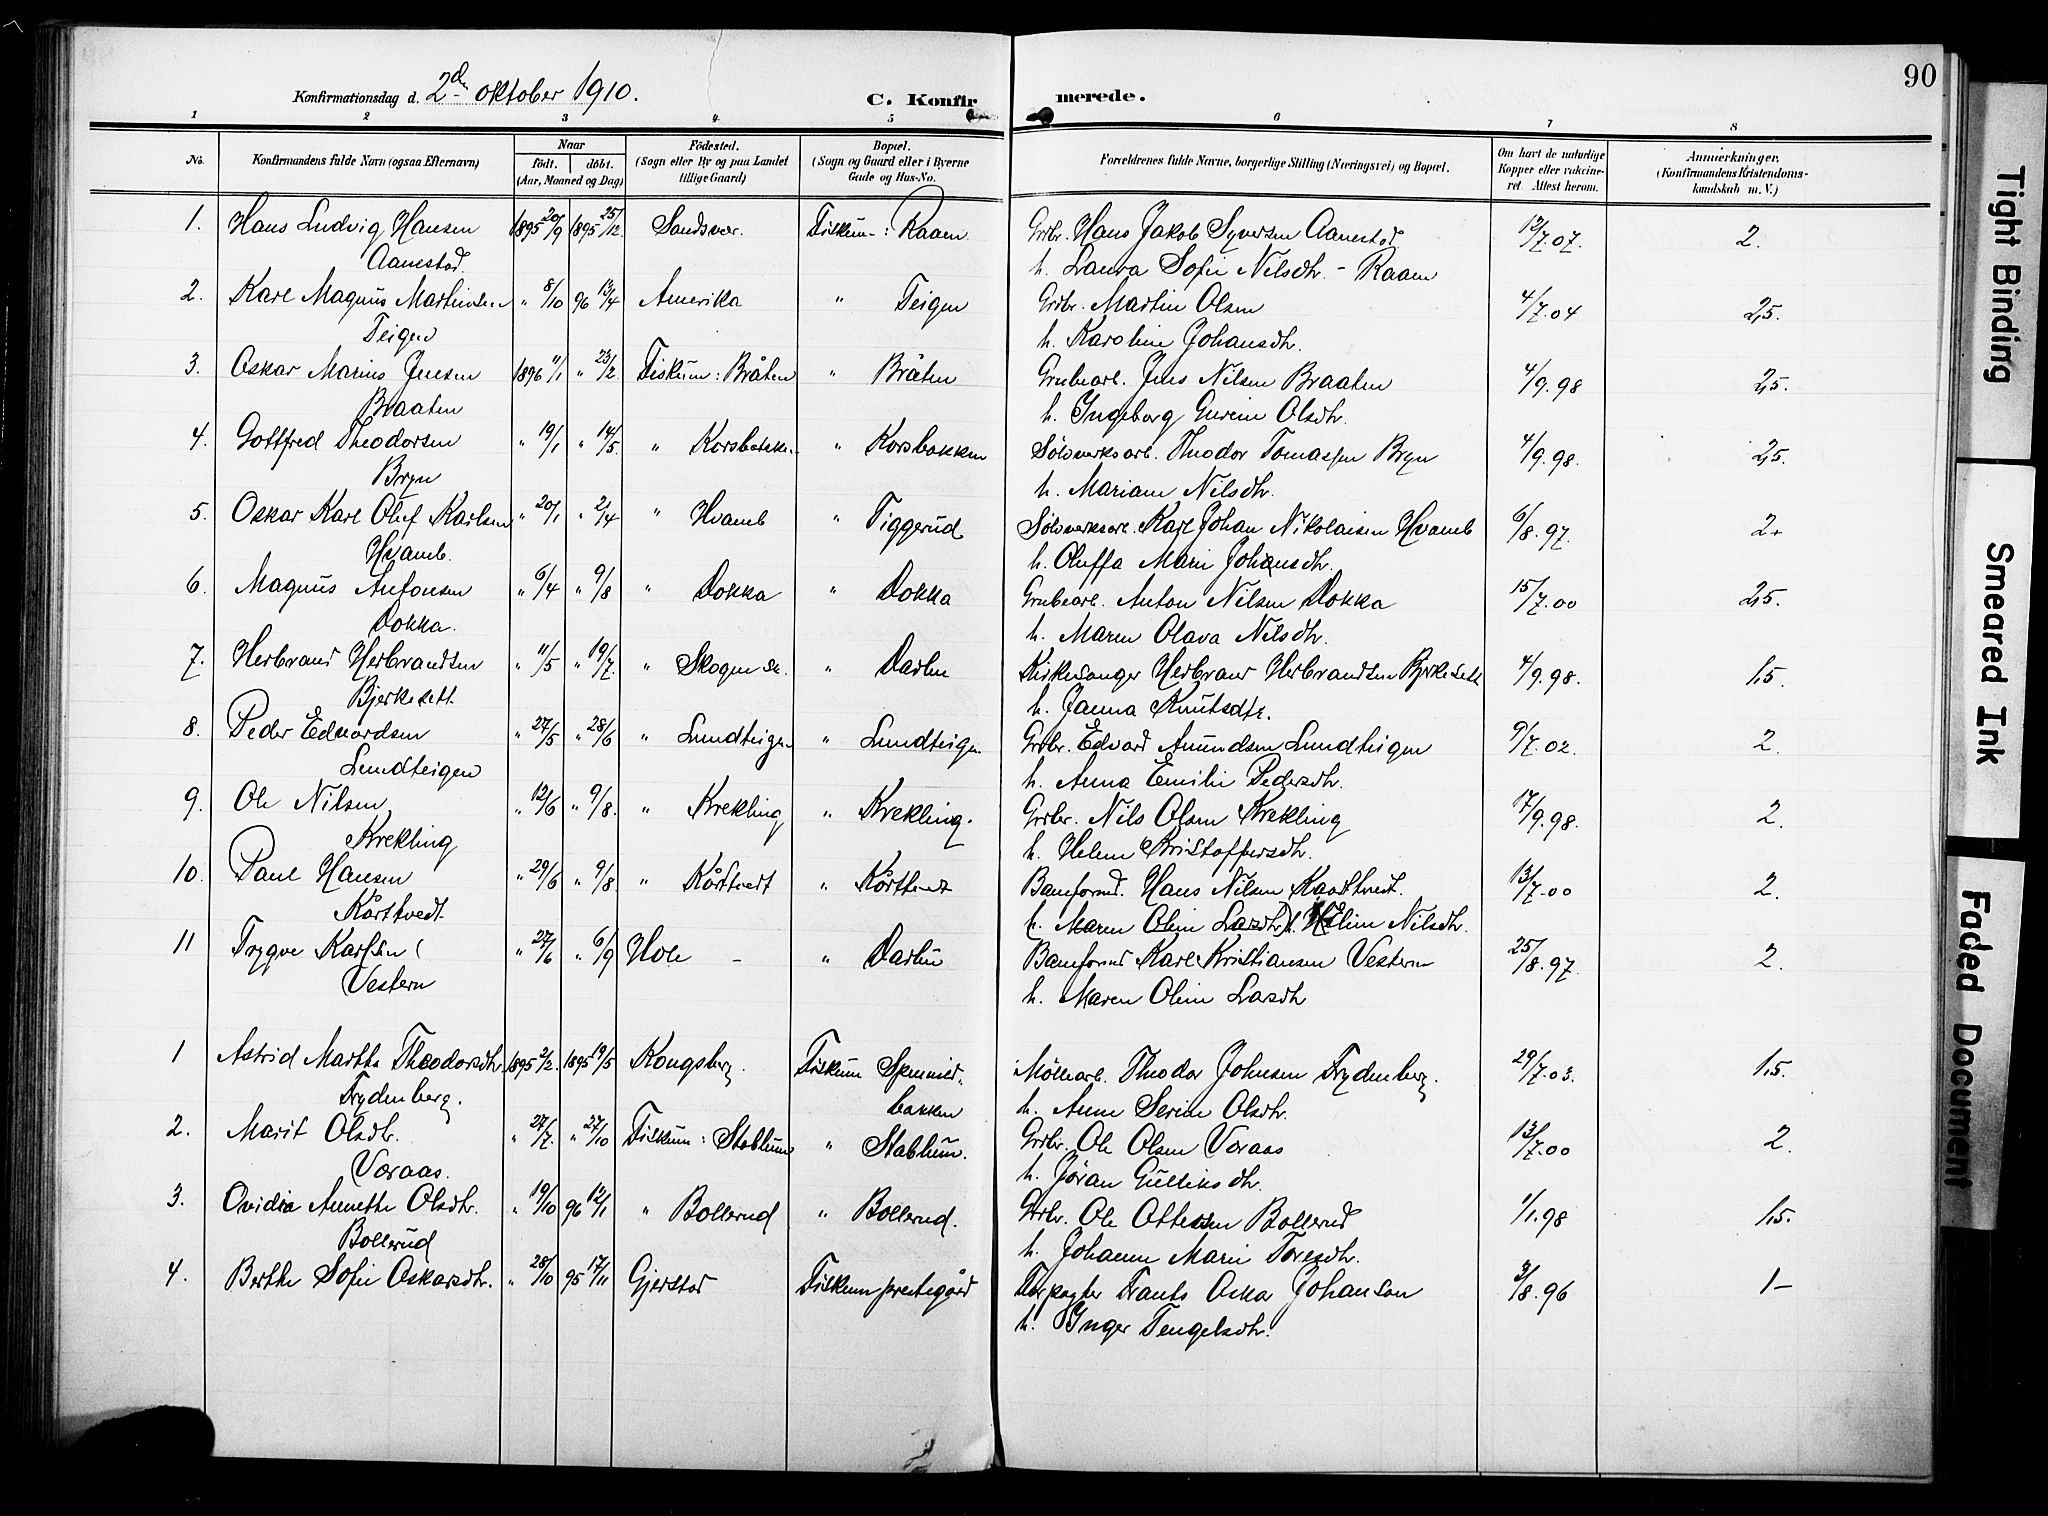 90
Konfirmationsdag d. 2den oktober 1910.
C. Konfirmerede.
1 2 3 4 5 6 7 8
No.
Konfirmandens fulde Navn (ogsaa Efternavn)
Naar
født. døbt.
(Aar, Maaned og Dag)
Fødested.
(Sogn eller By og paa Landet
tillige Gaard)
Bopæl.
(Sogn og Gaard eller i Byerne
Gade og Hus-No.
Forældrenes fulde Navne, borgerlige Stilling (Næringsvei) og Bopæl.
Om havt de naturlige
Kopper eller vakcine-
ret. Attest herom.
Anmærkninger,
(Konfirmandens Kristendoms-
kundskab m. V.)
1. Hans Ludvig Hansen 1895 20/9 1895 25/12. Sandsvær. Fiskum: Raaen Grbr. Hans Jakob Syversen Aanestad 12/7.07. 2.
Aanestad. h. Laura Sofie Nilsdtr. - Raaen
2. Karl Magnus Martinsen " 8/10 96 13/4 Amerika " Teigen Grbr. Martin Olsen 4/7.04 2,5.
Teigen h. Karoline Johansdtr.
3. Oskar Marius Jensen 1896 11/1 " 23/2. Fiskum: Bråten " Bråten Grubearb. Jens Nilsen Braaten 4/9.98 2,5.
Braaten h. Ingeborg Gurine Olsdtr.
4. Gottfred Theodorsen " 19/1 " 14/5. " Korsbakken " Korsbakken Sølvverksarb. Theodor Tomassen Bryn 4/9.98. 2,5.
Bryn h. Mariane Nilsdtr.
5. Oskar Karl Oluf Karlsen " 20/1 " 2/4 " Hvamb " Tiggerud Sølvverksarb. Karl Johan Nikolaisen Hvamb 6/8.97. 2+
Hvamb. h. Oluffa Marie Johansdtr.
6. Magnus Antonsen " 6/4 " 9/8 " Dokka " Dokka Grubearb. Anton Nilsen Dokka 15/7.00 2,5.
Dokka. h. Maren Olava Nilsdtr.
7. Herbrand Herbrandsen " 11/5 " 19/7. " Skogen sk. " Darbu Kirkesanger Herbrand Herbrandsen Bjerkesett 4/9.98. 1,5.
Bjerkesett. h. Janna Knutsdtr.
8. Peder Edvardsen " 27/5 " 28/6 " Lundteigen " Lundteigen Grbr. Edvard Amundsen Lundteigen 9/7.02. 2.
Lundteigen h. Anna Emilie Pedersdtr.
9. Ole Nilsen " 12/6 " 9/8. " Krekling " Krekling. Grbr. Nils Olsen Krekling 17/9.98. 2.
Krekling h. Helene Kristoffersdtr.
10. Paul Hansen " 29/6 " 9/8. " Kårtvedt " Kårtvedt Baneformd. Hans Nilsen Kaartvedt. 13/7.00 2.
Kårtvedt. h. Maren Oline Larsdtr) h. Eline Nilsdtr.
11 Trygve Karlsen " 27/6 " 6/9 Hole - " Darbu Baneformd Karl Kristiansen Vestern 25/8.97. 2.
Vestern h. Maren Oline Larsdtr
1 Astrid Marthe Theodorsdtr 1895 2/2. 1895 19/5 Kongsberg. Fiskum Spennild- Møllearb. Theodor Johnsen Frydenberg. 29/7.03. 1,5.
Frydenberg. bakken h. Anne Serine Olsdtr.
2. Marit Olsdtr. " 27/7. " 27/10 Fiskum: Stablum " Stablum. Grbr. Ole Olsen Voraas 13/7.00 2.
Voraas. h. Jøran Gulliksdtr.
3. Ovidia Annette Olsdtr. " 19/10 96 12/1 " Bollerud " Bollerud. Grbr. Ole Ottersen Bollerud 1/1.98 1,5.
Bollerud h. Johanne Marie Toresdtr.
4. Berthe Sofie Oskarsdtr. " 28/10 95 17/11 Gjerstad Fiskum prestegård Forpagter Frants Oskar Johanson 3/8.96 1-
h. Inger Tengelsdtr.
Tight Binding
Smeared Ink
Faded Document